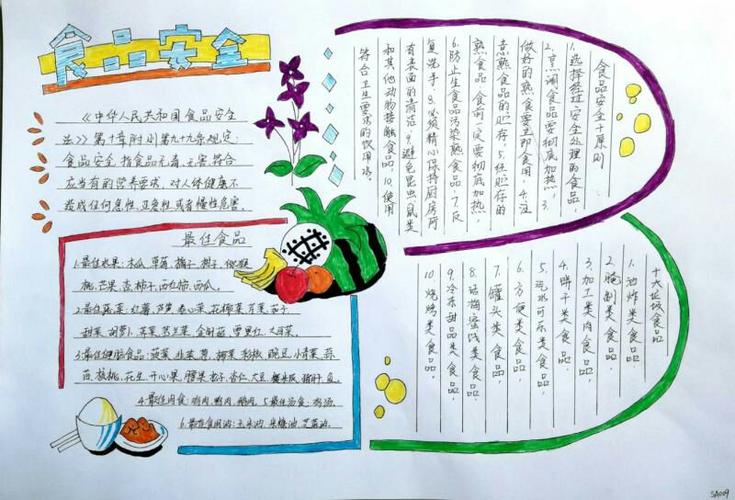 食品安全
《中华人民共和国食品安全
法》第十章附则第九十九条规定:
食品安全,指食品无毒、无害,符合
应当有的营养要求,对人体健康不
造成任何急性、亚急性或者慢性危害。
最佳食品
1.最佳水果:木瓜、草莓、橘子、柑子、猕猴
桃、芒果、杏、柿子、西瓜。
2.最佳蔬菜:红薯、芦笋、卷心菜、花椰菜、芹菜、茄子、
甜菜、胡萝卜、荠菜、金针菇、雪里红、大白菜。
3.最佳健脑食品:菠菜、韭菜、葱、椰菜、豌豆、小青菜、蒜
苗、核桃、花生、开心果、腰果、杏仁、大豆
4.最佳肉食:鸡肉。5.最佳汤食:鸡汤。
6.最佳食用油:玉米油、米糠油、芝麻油。
食品安全十原则
1.选择经过安全处理的食品,
2.烹调食品要彻底加热,3.
做好的熟食要立即食用,4.注
意熟食品的贮存,5.经贮存的
熟食品,食前一定要彻底加热,
6.防止生食品污染熟食品,7.反
复洗手,8.必须精心保持厨房所
有表面的清洁,9.避免昆虫、鼠类
和其他动物接触食品,10.使用
符合卫生要求的饮用水。
十大垃圾食品
1.油炸类食品,
2.腌制类食品,
3.加工类肉食品,
4.饼干类食品,
5.汽水可乐类食品,
6.方便类食品,
7.罐头类食品,
8.话梅蜜饯类食品,
9.冷冻甜品类食品,
10.烧烤类食品。